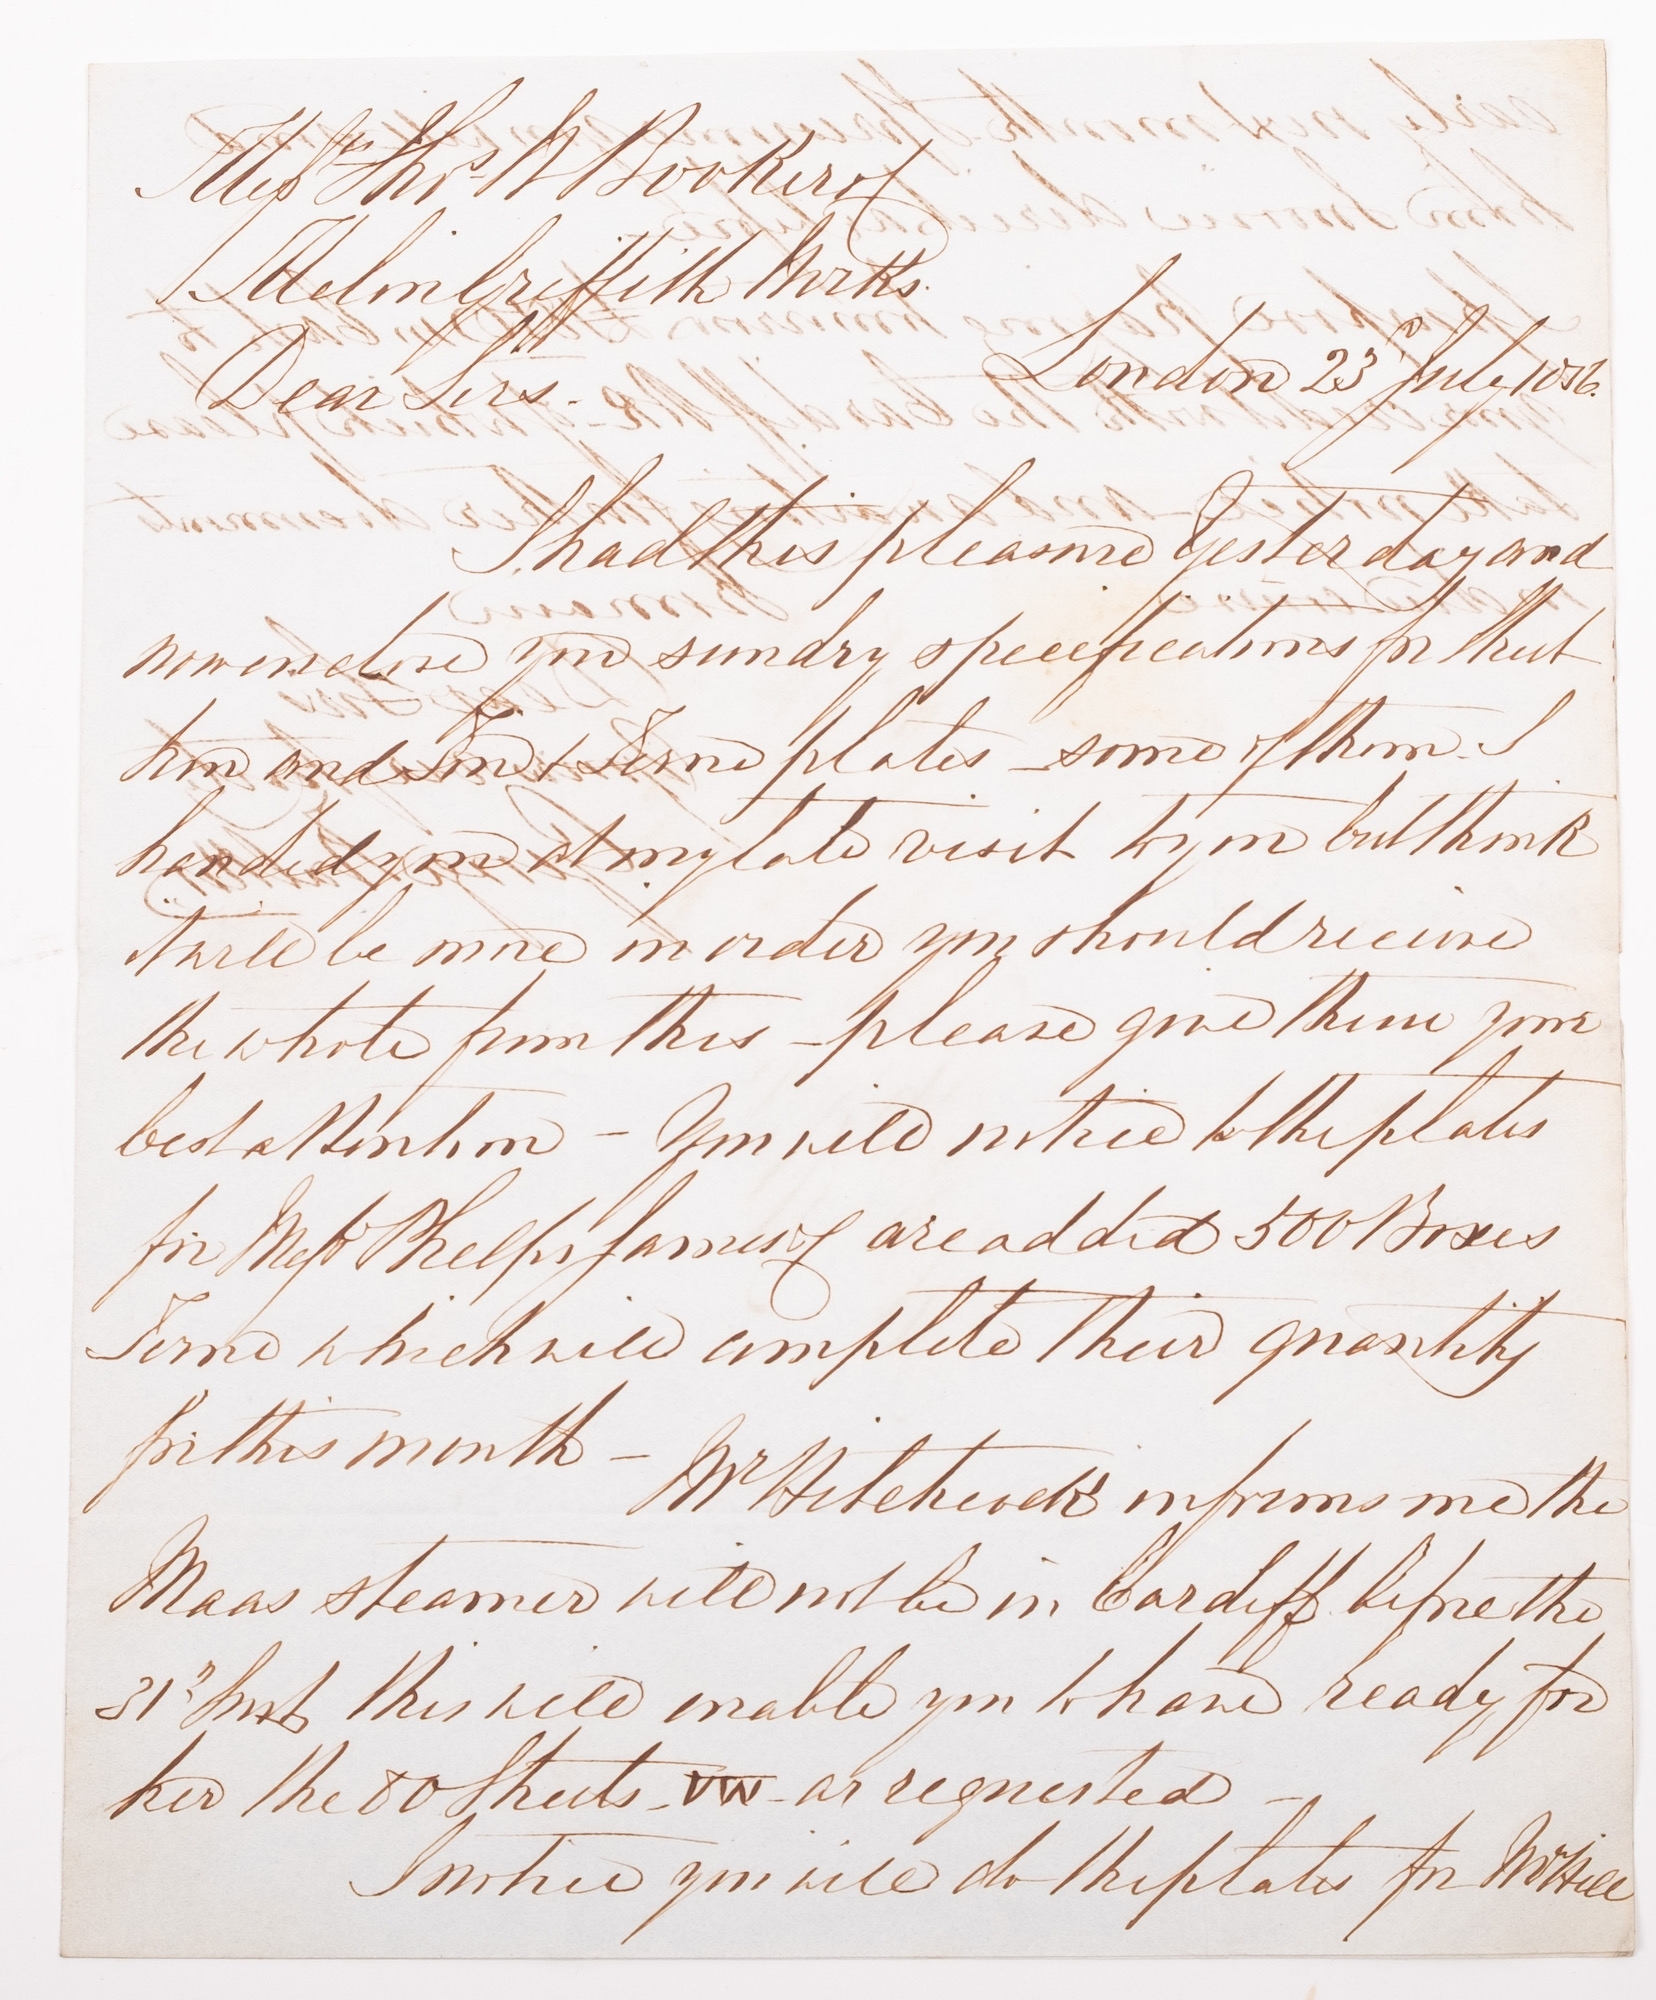 Messrs Thos W Booker & Co
Melin Griffith Works.
Dear Sirs.
London 23d July 1856.
I had this pleasure Yesterday and
now enclose you sundry specifications for Sheet
Iron and Tin & Terne plates - some of them I
handed you at my late visit to you but think
it will be more in order you should receive
the whole from this - please give them your
best attention - You will notice to the plates
for Messrs Phelps James & Co are added 500 Boxes
Terne which will complete their quantity
for this month -
Mr Hitchcock informs me the
Maas steamer will not be in Cardiff before the
31st Inst this will enable you to have ready for
her the 80 Sheets - VW - as requested -
I notice you will do the plates for Mr Hill